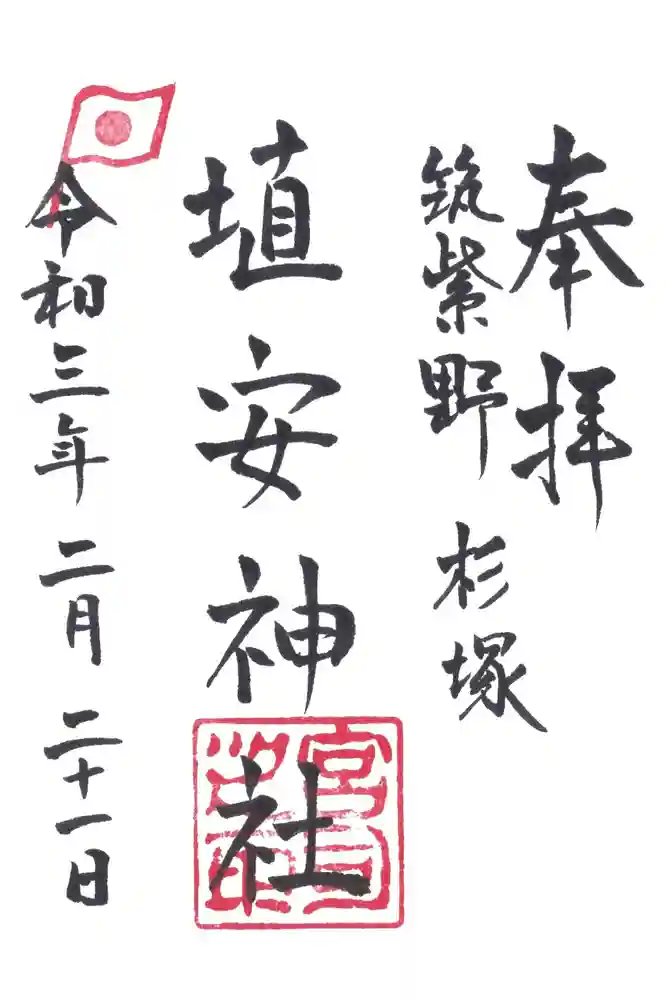 奉拝
筑紫野 杉塚
埴安神社
令和三年二月二十一日